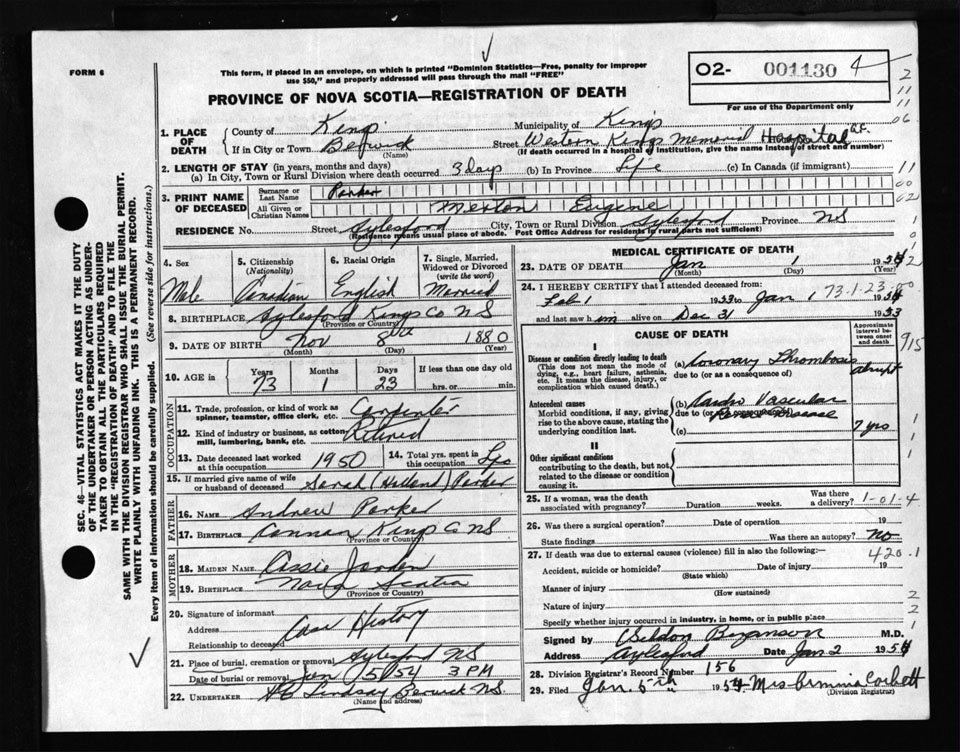 FORM 6
This form, if placed in an envelope, on which is printed "Dominion Statistics—Free, penalty for improper
use $50," and properly addressed will pass through the mail "FREE"
02- 001130 4
For use of the Department only
PROVINCE OF NOVA SCOTIA—REGISTRATION OF DEATH
1. PLACE OF DEATH { County of Kings Municipality of Kings
If in City or Town Berwick (Name) Street Western Kings Memorial Hospital
(If death occurred in a hospital or institution, give the name instead of street and number)
2. LENGTH OF STAY (in years, months and days)
(a) In City, Town or Rural Division where death occurred 3 day (b) In Province Life (c) In Canada (if immigrant)
3. PRINT NAME OF DECEASED { Surname or Last Name Parker
All Given or Christian Names Merton Eugene
RESIDENCE No. Street Aylesford City, Town or Rural Division Aylesford Province NS
(Residence means usual place of abode. Post Office Address for residents in rural parts not sufficient)
4. Sex Male
5. Citizenship (Nationality) Canadian
6. Racial Origin English
7. Single, Married, Widowed or Divorced (write the word) Married
8. BIRTHPLACE Aylesford Kings Co NS
(Province or Country)
9. DATE OF BIRTH Nov 8th 1880
(Month) (Day) (Year)
10. AGE in { Years 73 Months 1 Days 23 If less than one day old hrs. or min.
OCCUPATION
11. Trade, profession, or kind of work as spinner, teamster, office clerk, etc. Carpenter
12. Kind of industry or business, as cotton mill, lumbering, bank, etc. Retired
13. Date deceased last worked at this occupation 1950
14. Total yrs. spent in this occupation
15. If married give name of wife or husband of deceased Sarah (Holland) Parker
FATHER
16. Name Andrew Parker
17. Birthplace Kings Co NS
(Province or Country)
MOTHER
18. MAIDEN NAME
19. BIRTHPLACE Nova Scotia
(Province or Country)
20. Signature of informant
Address Case History
Relationship to deceased
21. Place of burial, cremation or removal Aylesford NS
Date of burial or removal Jan 5/54 3 PM
22. UNDERTAKER Lindsay Berwick N.S.
(Name and address)
MEDICAL CERTIFICATE OF DEATH
23. DATE OF DEATH Jan 1 1954
(Month) (Day) (Year)
24. I HEREBY CERTIFY that I attended deceased from:
Feb 1 1953 to Jan 1 1954
73-1-23-00
and last saw him alive on Dec 31 1953
CAUSE OF DEATH
Approximate interval between onset and death
I
Disease or condition directly leading to death
(This does not mean the mode of dying, e.g., heart failure, asthenia, etc. It means the disease, injury, or complication which caused death)
(a) Coronary Thrombosis abrupt
due to (or as a consequence of)
Antecedent causes
Morbid conditions, if any, giving rise to the above cause, stating the underlying condition last.
(b) Cardio Vascular
due to (or as a consequence of) Disease
(c) 7 yrs
II
Other significant conditions
contributing to the death, but not related to the disease or condition causing it
25. If a woman, was the death associated with pregnancy? Duration weeks. Was there a delivery?
1-01-4
26. Was there a surgical operation? Date of operation 19
State findings Was there an autopsy? no
420.1
27. If death was due to external causes (violence) fill in also the following:—
Accident, suicide or homicide? Date of injury 19
(State which)
Manner of injury
(How sustained)
Nature of injury
Specify whether injury occurred in industry, in home, or in public place
Signed by M.D.
Address Aylesford Date Jan 2 1954
28. Division Registrar's Record Number 156
29. Filed Jan. 5th 1954 Mrs Corbett
(Division Registrar)
915
SEC. 46—VITAL STATISTICS ACT MAKES IT THE DUTY
OF THE UNDERTAKER OR PERSON ACTING AS UNDER-
TAKER TO OBTAIN ALL THE PARTICULARS REQUIRED
IN THE "REGISTRATION OF DEATH" AND TO FILE THE
SAME WITH THE DIVISION REGISTRAR WHO SHALL ISSUE THE BURIAL PERMIT.
WRITE PLAINLY WITH UNFADING INK. THIS IS A PERMANENT RECORD.
Every item of information should be carefully supplied. (See reverse side for instructions.)